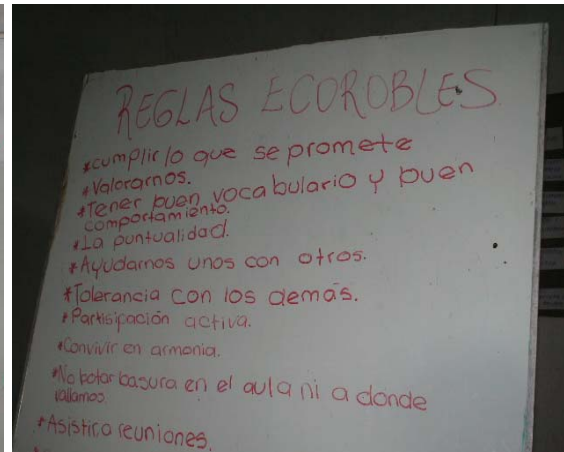 REGLAS ECOROBLES
*cumplir lo que se promete
*Valorarnos.
*Tener buen vocabulario y buen
comportamiento.
*La puntualidad.
*Ayudarnos unos con otros.
*Tolerancia con los demás.
*Partisipación activa.
*Convivir en armonia.
*No botar basura en el aula ni a donde
vallamos.
*Asistir a reuniones.